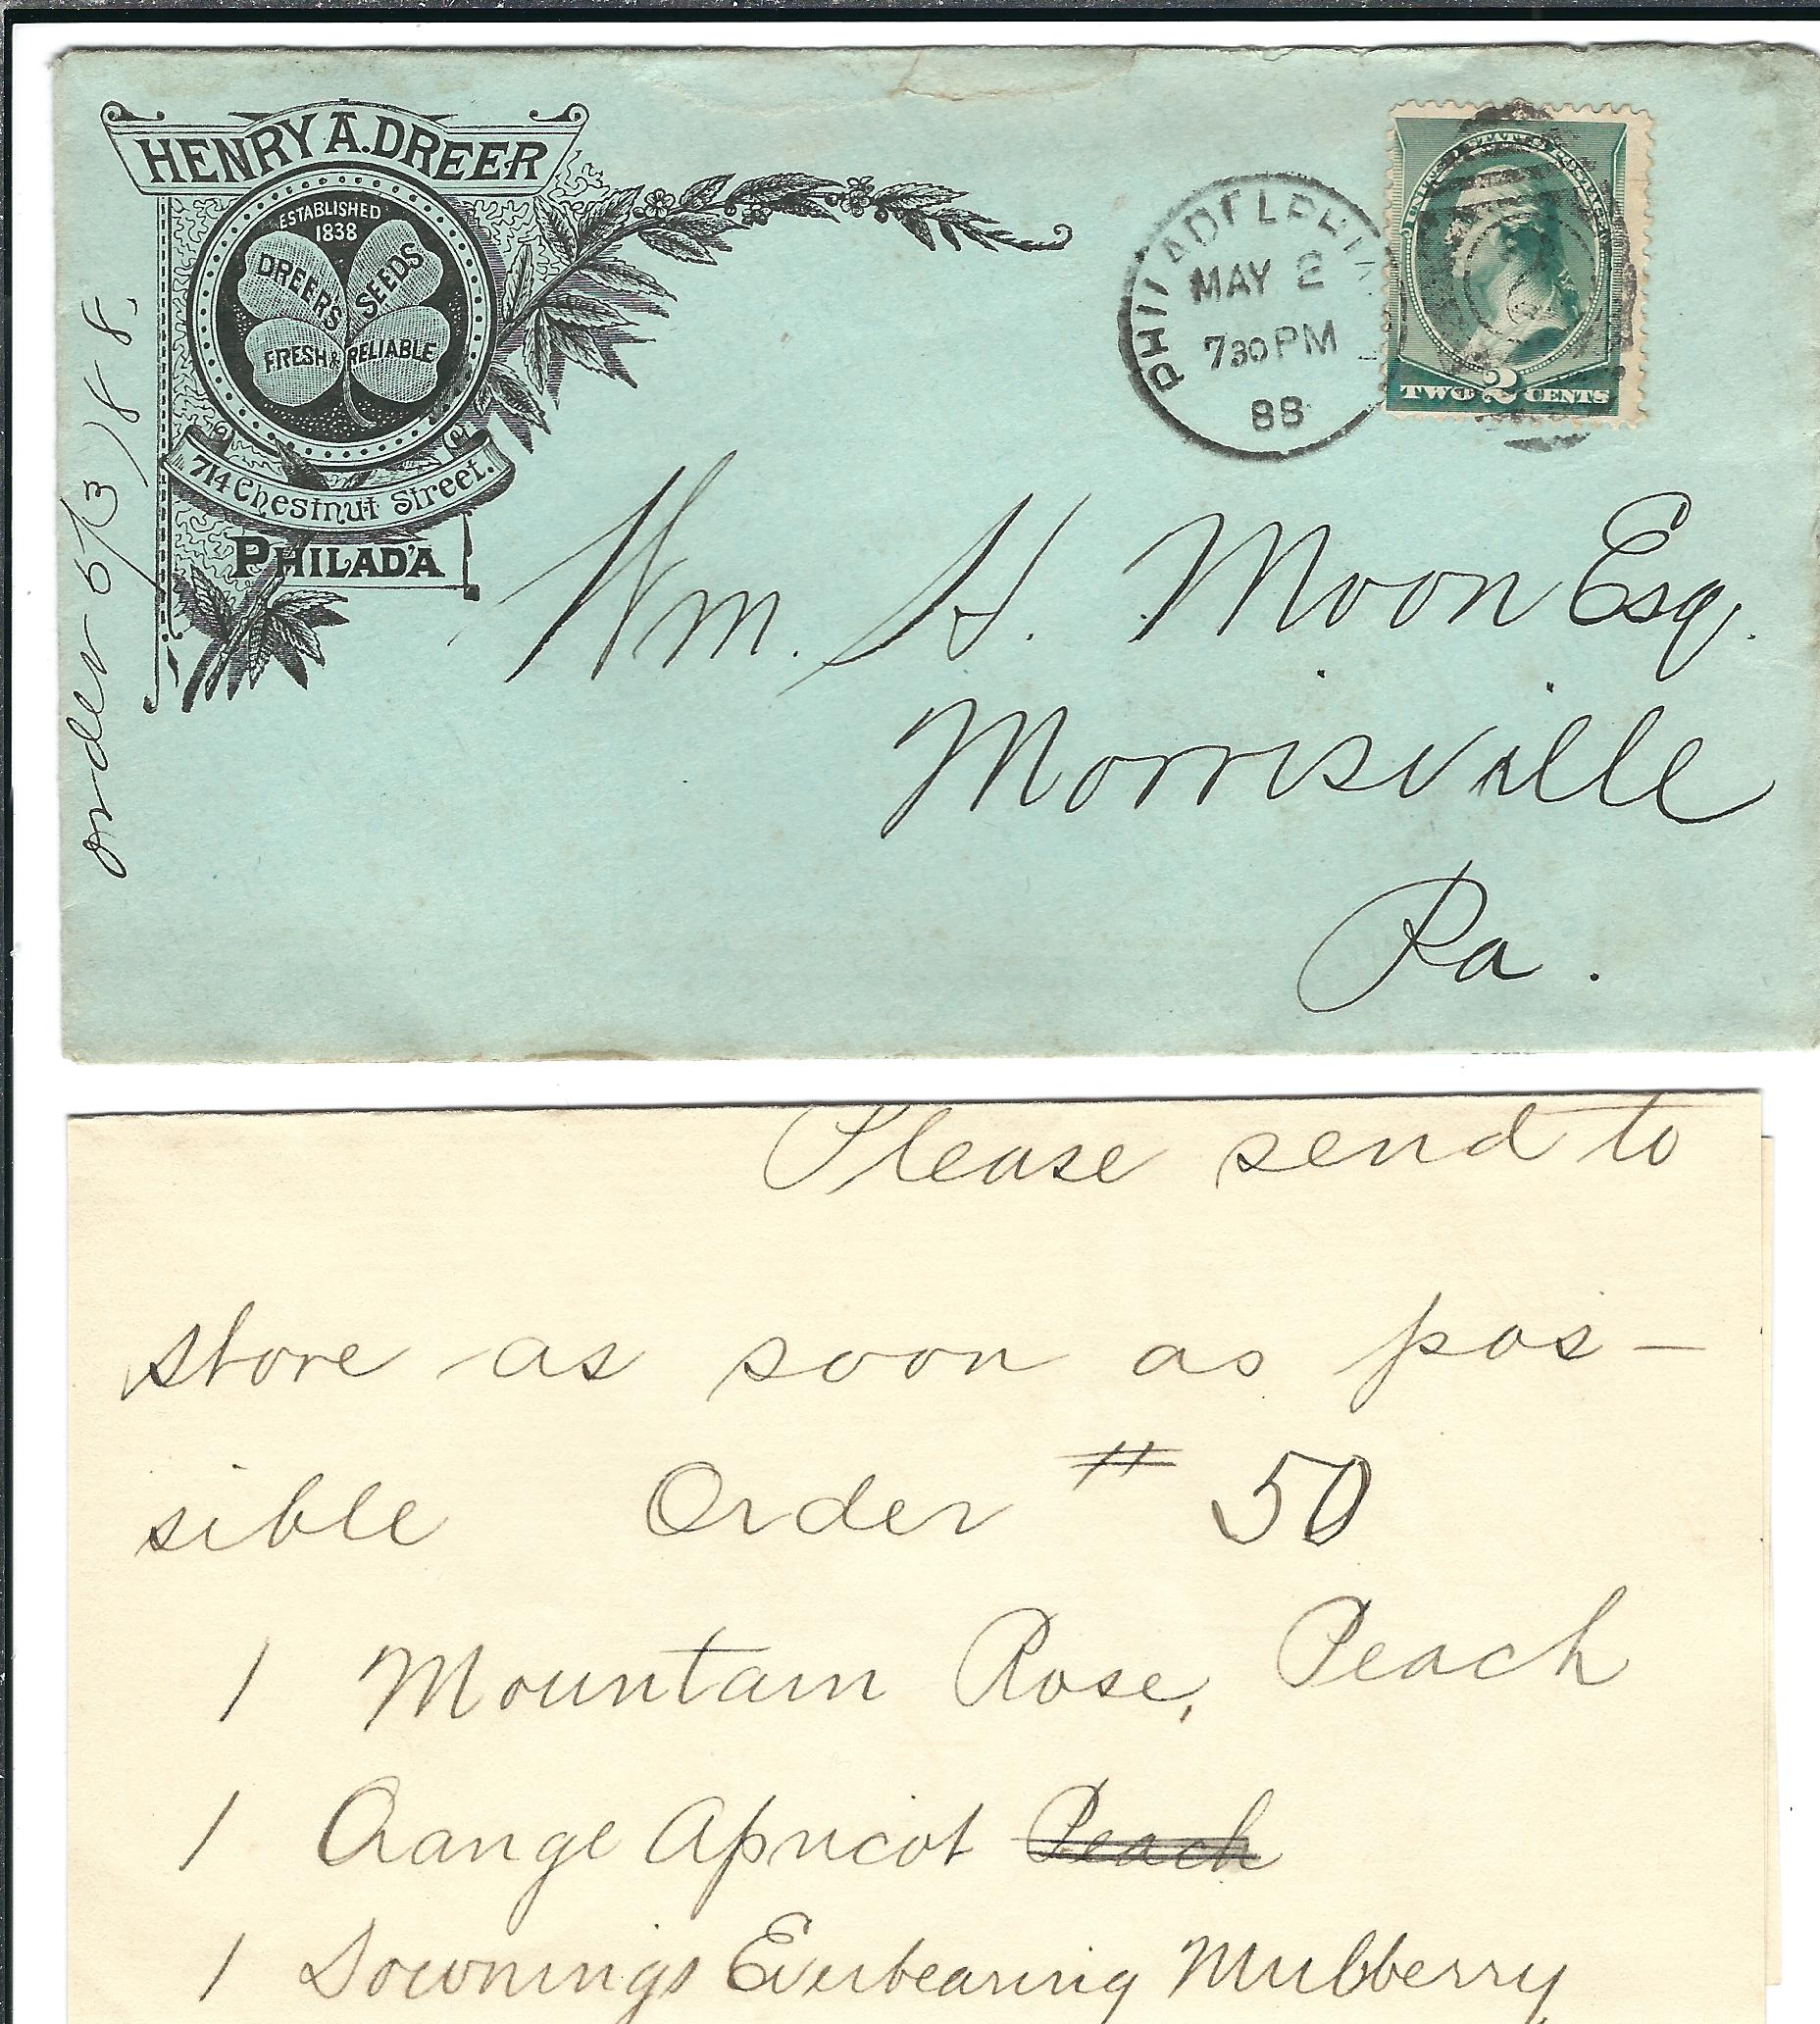 HENRY A. DREER
ESTABLISHED
1838
DREER'S SEEDS
FRESH & RELIABLE
714 Chestnut Street.
PHILAD'A
order 5/3/88.
PHILADELPHIA
MAY 2
730 PM
88
UNITED STATES POSTAGE
TWO 2 CENTS
Wm. H. Moon Esq.
Morrisville
Pa.
Please send to
store as soon as pos-
sible Order # 50
1 Mountain Rose, Peach
1 Orange Apricot Peach
1 Downings Everbearing Mulberry